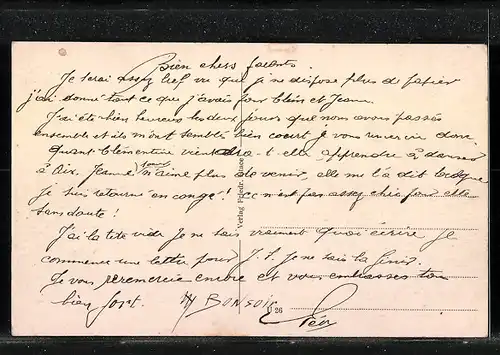 Bien chers parents.
Je serai assez bref vu que je ne dispose plus de papier
j'ai donné tout ce que j'avais pour Clém et Jeanne.
J'ai été bien heureux les deux jours que nous avons passés
ensemble et ils m'ont semblé bien court je vous
quant Clémentine viendra-t-elle apprendre à danser
à Aix, Jeanne n'aime plus de venir, elle me l'a dit lorsque
je suis retourné en congé! ce n'est pas assez chic pour elle
sans doute!
J'ai la tête vide je ne sais vraiment quoi écrire je
commence une lettre pour J. F. je ne sais la finir.
Je vous remercie encore et vous embrasses tou
bien fort. BONSOIR
Léon
Verlag Friedr.
U 26